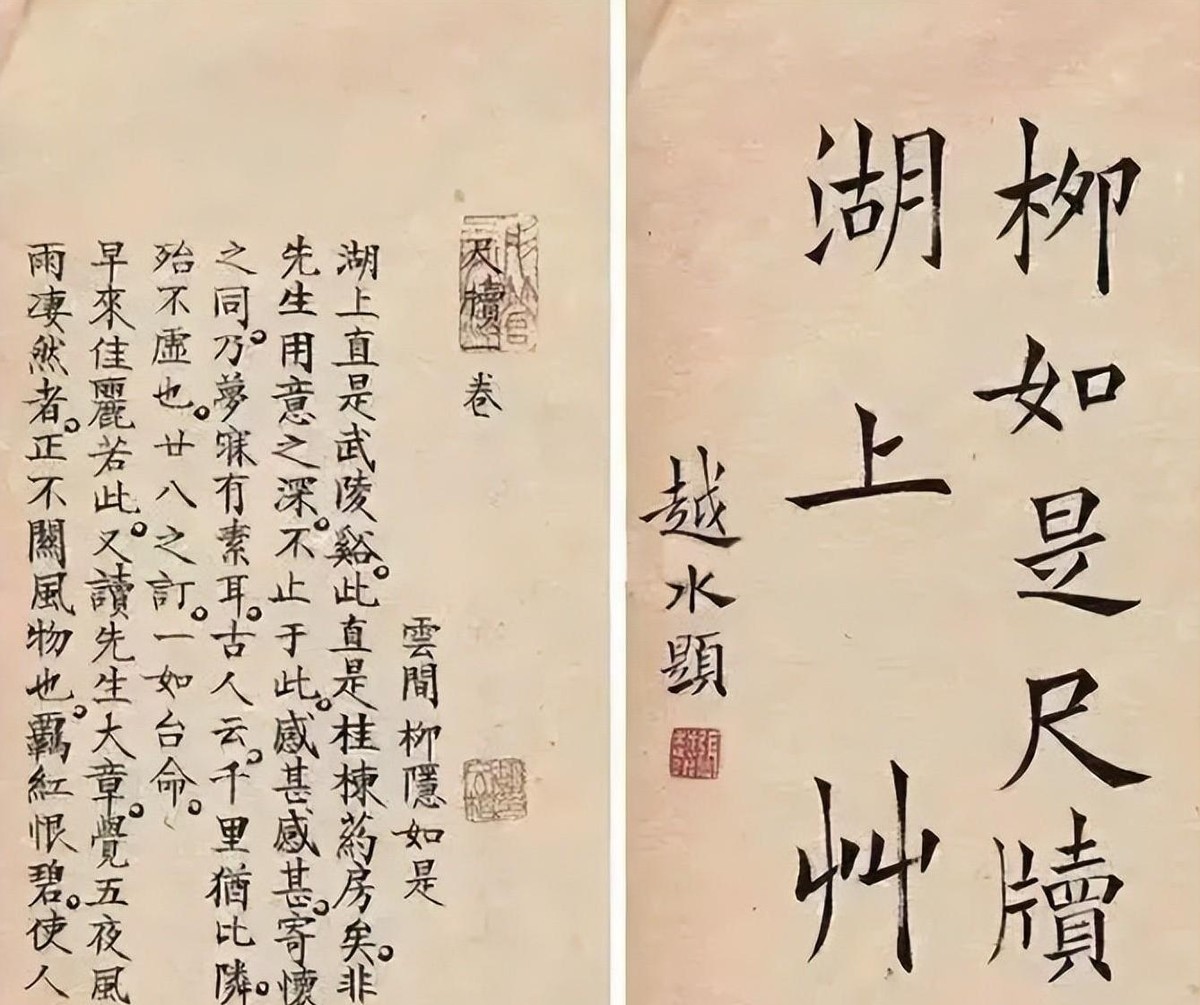 柳如是尺牘
湖上艸
越水題
尺牘卷
雲間柳隱如是
湖上直是武陵谿。此直是桂棟葯房矣。非
先生用意之深。不止于此。感甚感甚。寄懷
之同。乃夢寐有素耳。古人云。千里猶比隣。
殆不虛也。廿八之訂。一如台命。
早來佳麗若此。又讀先生大章。覺五夜風
雨淒然者。正不關風物也。羈紅恨碧。使人